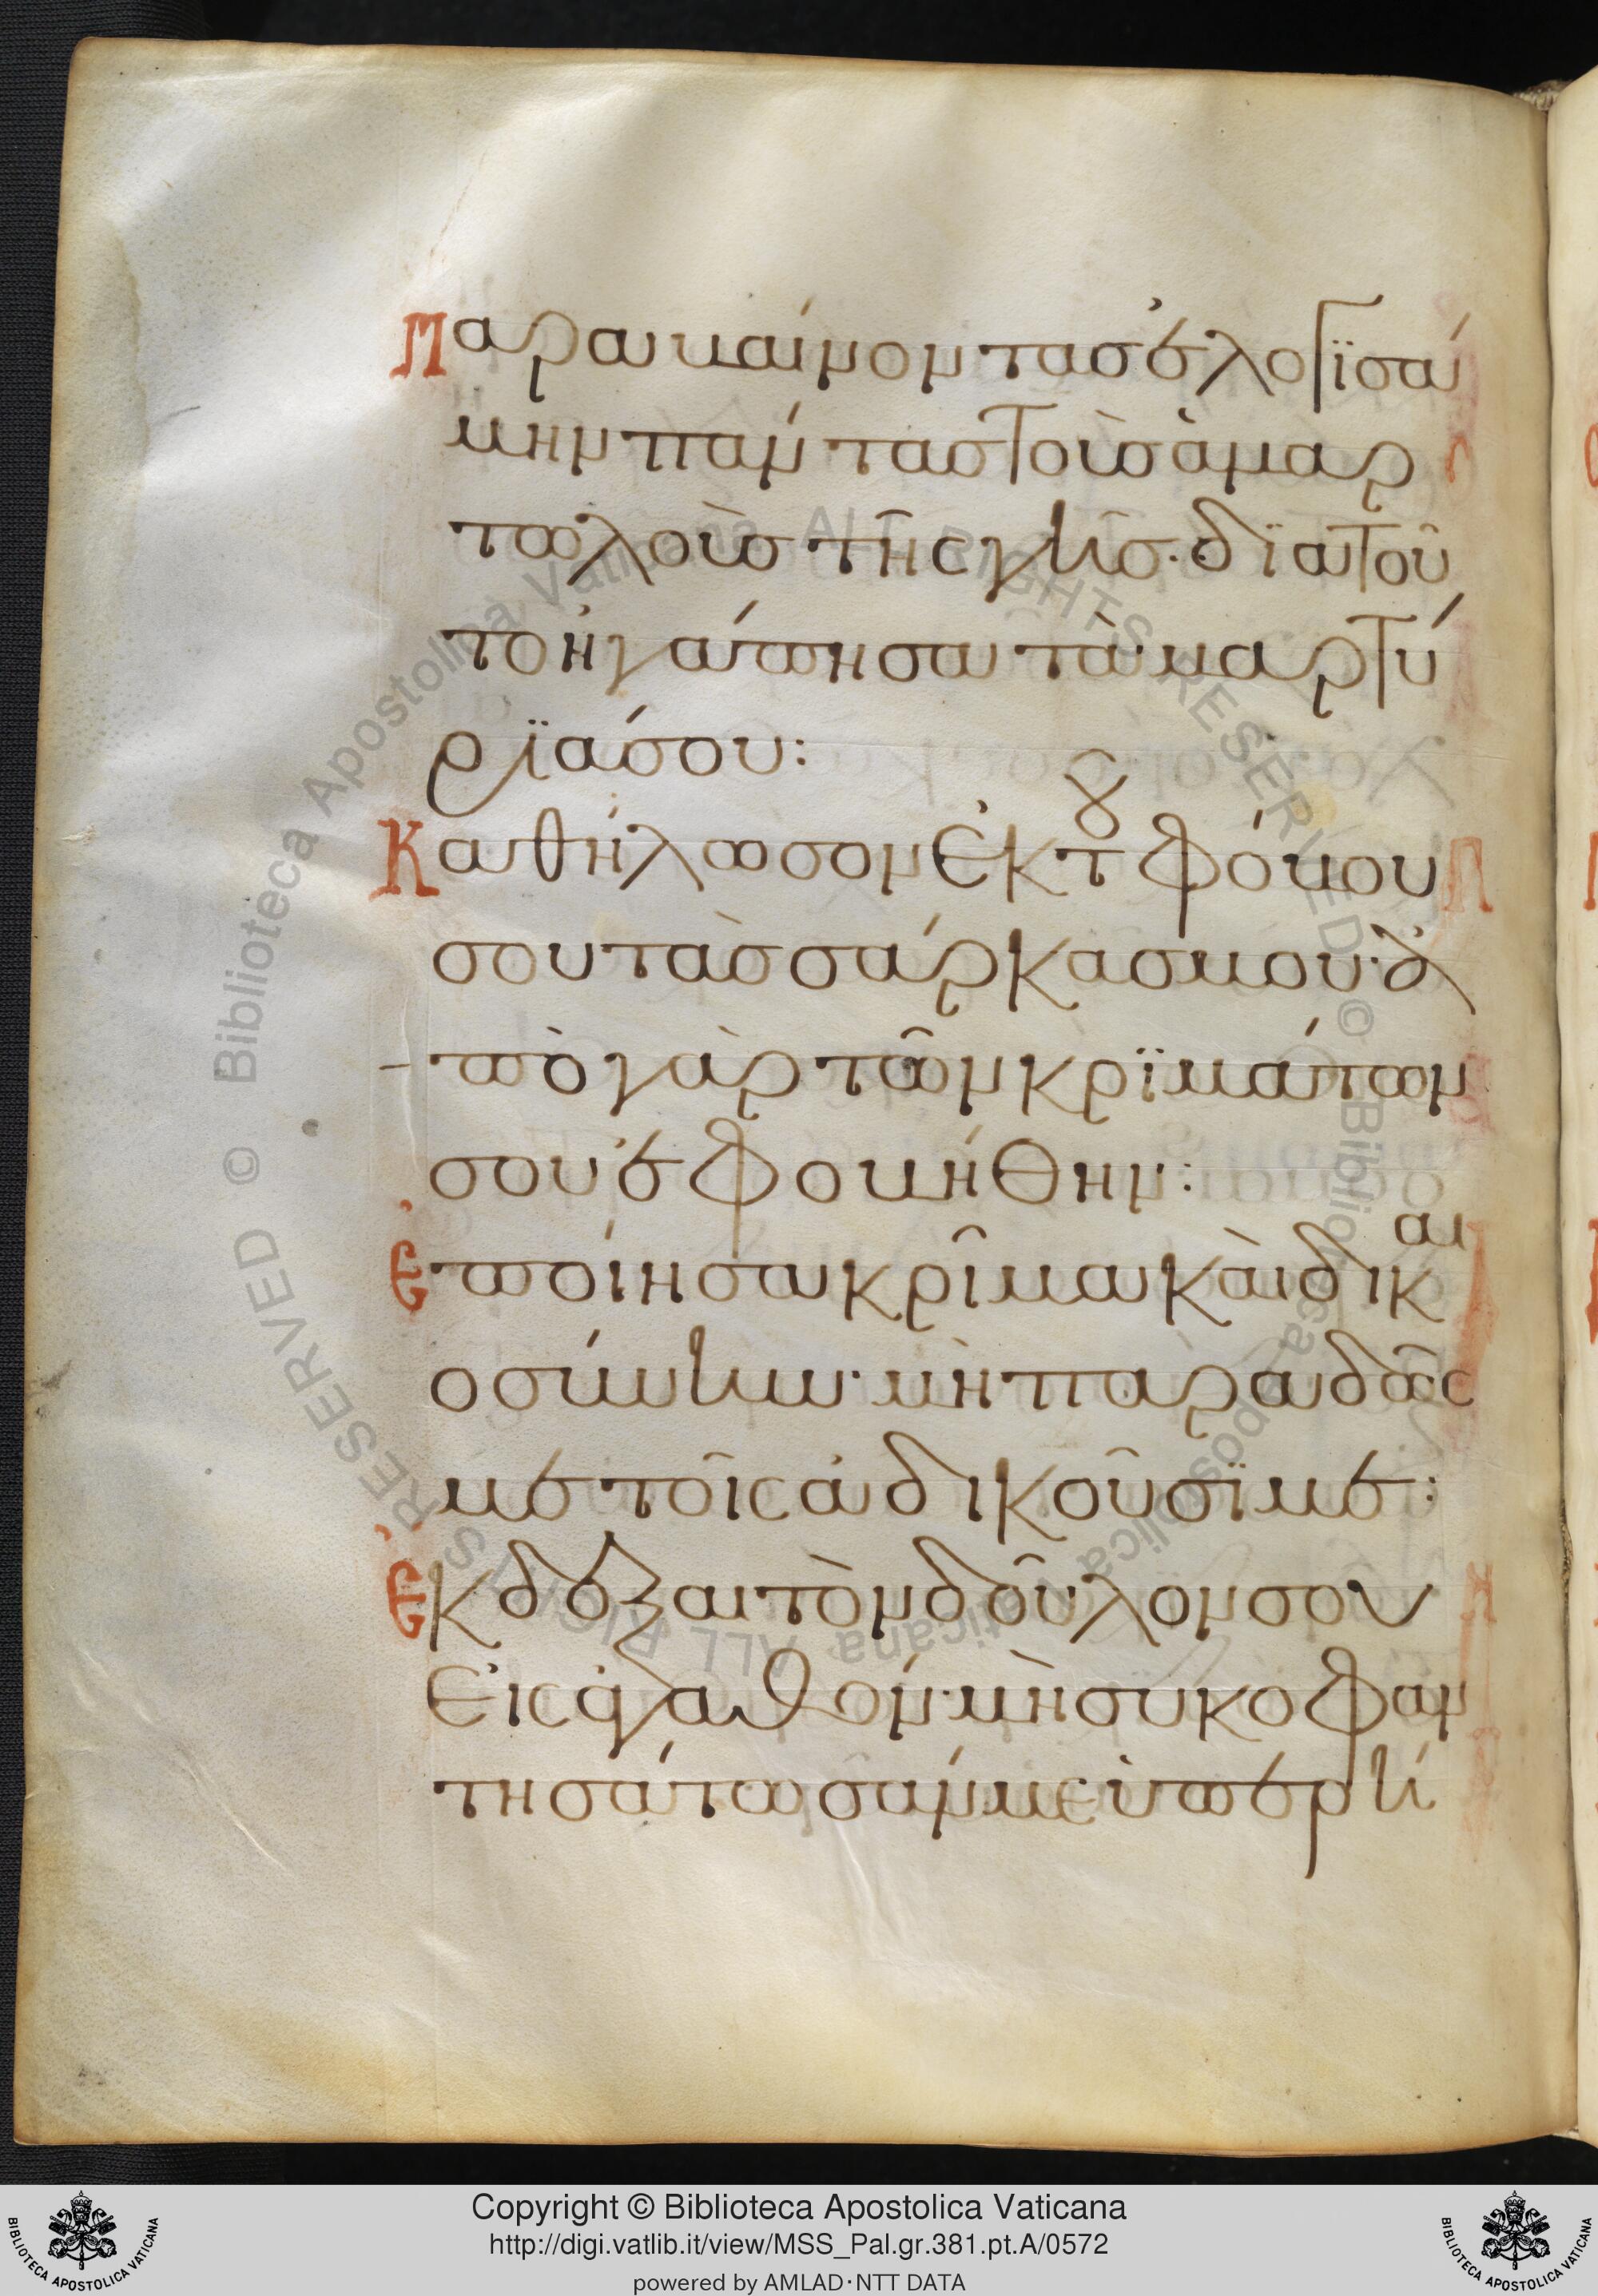 Παραβαίνοντας ἐλογϊσά
μην πάντας τοὺσ ἁμαρ
τωλοὺσ τῆς γῆσ· δϊατοῦ
το ἠγάπησα τὰ μαρτύ
ρϊά σου:
Καθήλωσον ἐκ τȣ φόβου
σου τὰσ σάρκασ μου· ἀ
πὸ γὰρ τῶν κρϊμάτων
σου ἐφοβήθην:
Ἐποίησα κρῖμα καὶ δικαι
οσύνην· μὴ παραδῶς
με τοῖς ἀδικοῦσϊ με:
Ἔκδεξαι τὸν δοῦλον σου
εἰς ἀγαθόν· μὴ συκοφαν
τησάτωσάν με ὑπερή
Copyright © Biblioteca Apostolica Vaticana
http://digi.vatlib.it/view/MSS_Pal.gr.381.pt.A/0572
powered by AMLAD·NTT DATA
BIBLIOTECA APOSTOLICA VATICANA
BIBLIOTECA APOSTOLICA VATICANA
© Biblioteca Apostolica Vaticana ALL RIGHTS RESERVED © Biblioteca Apostolica Vaticana ALL RIGHTS RESERVED